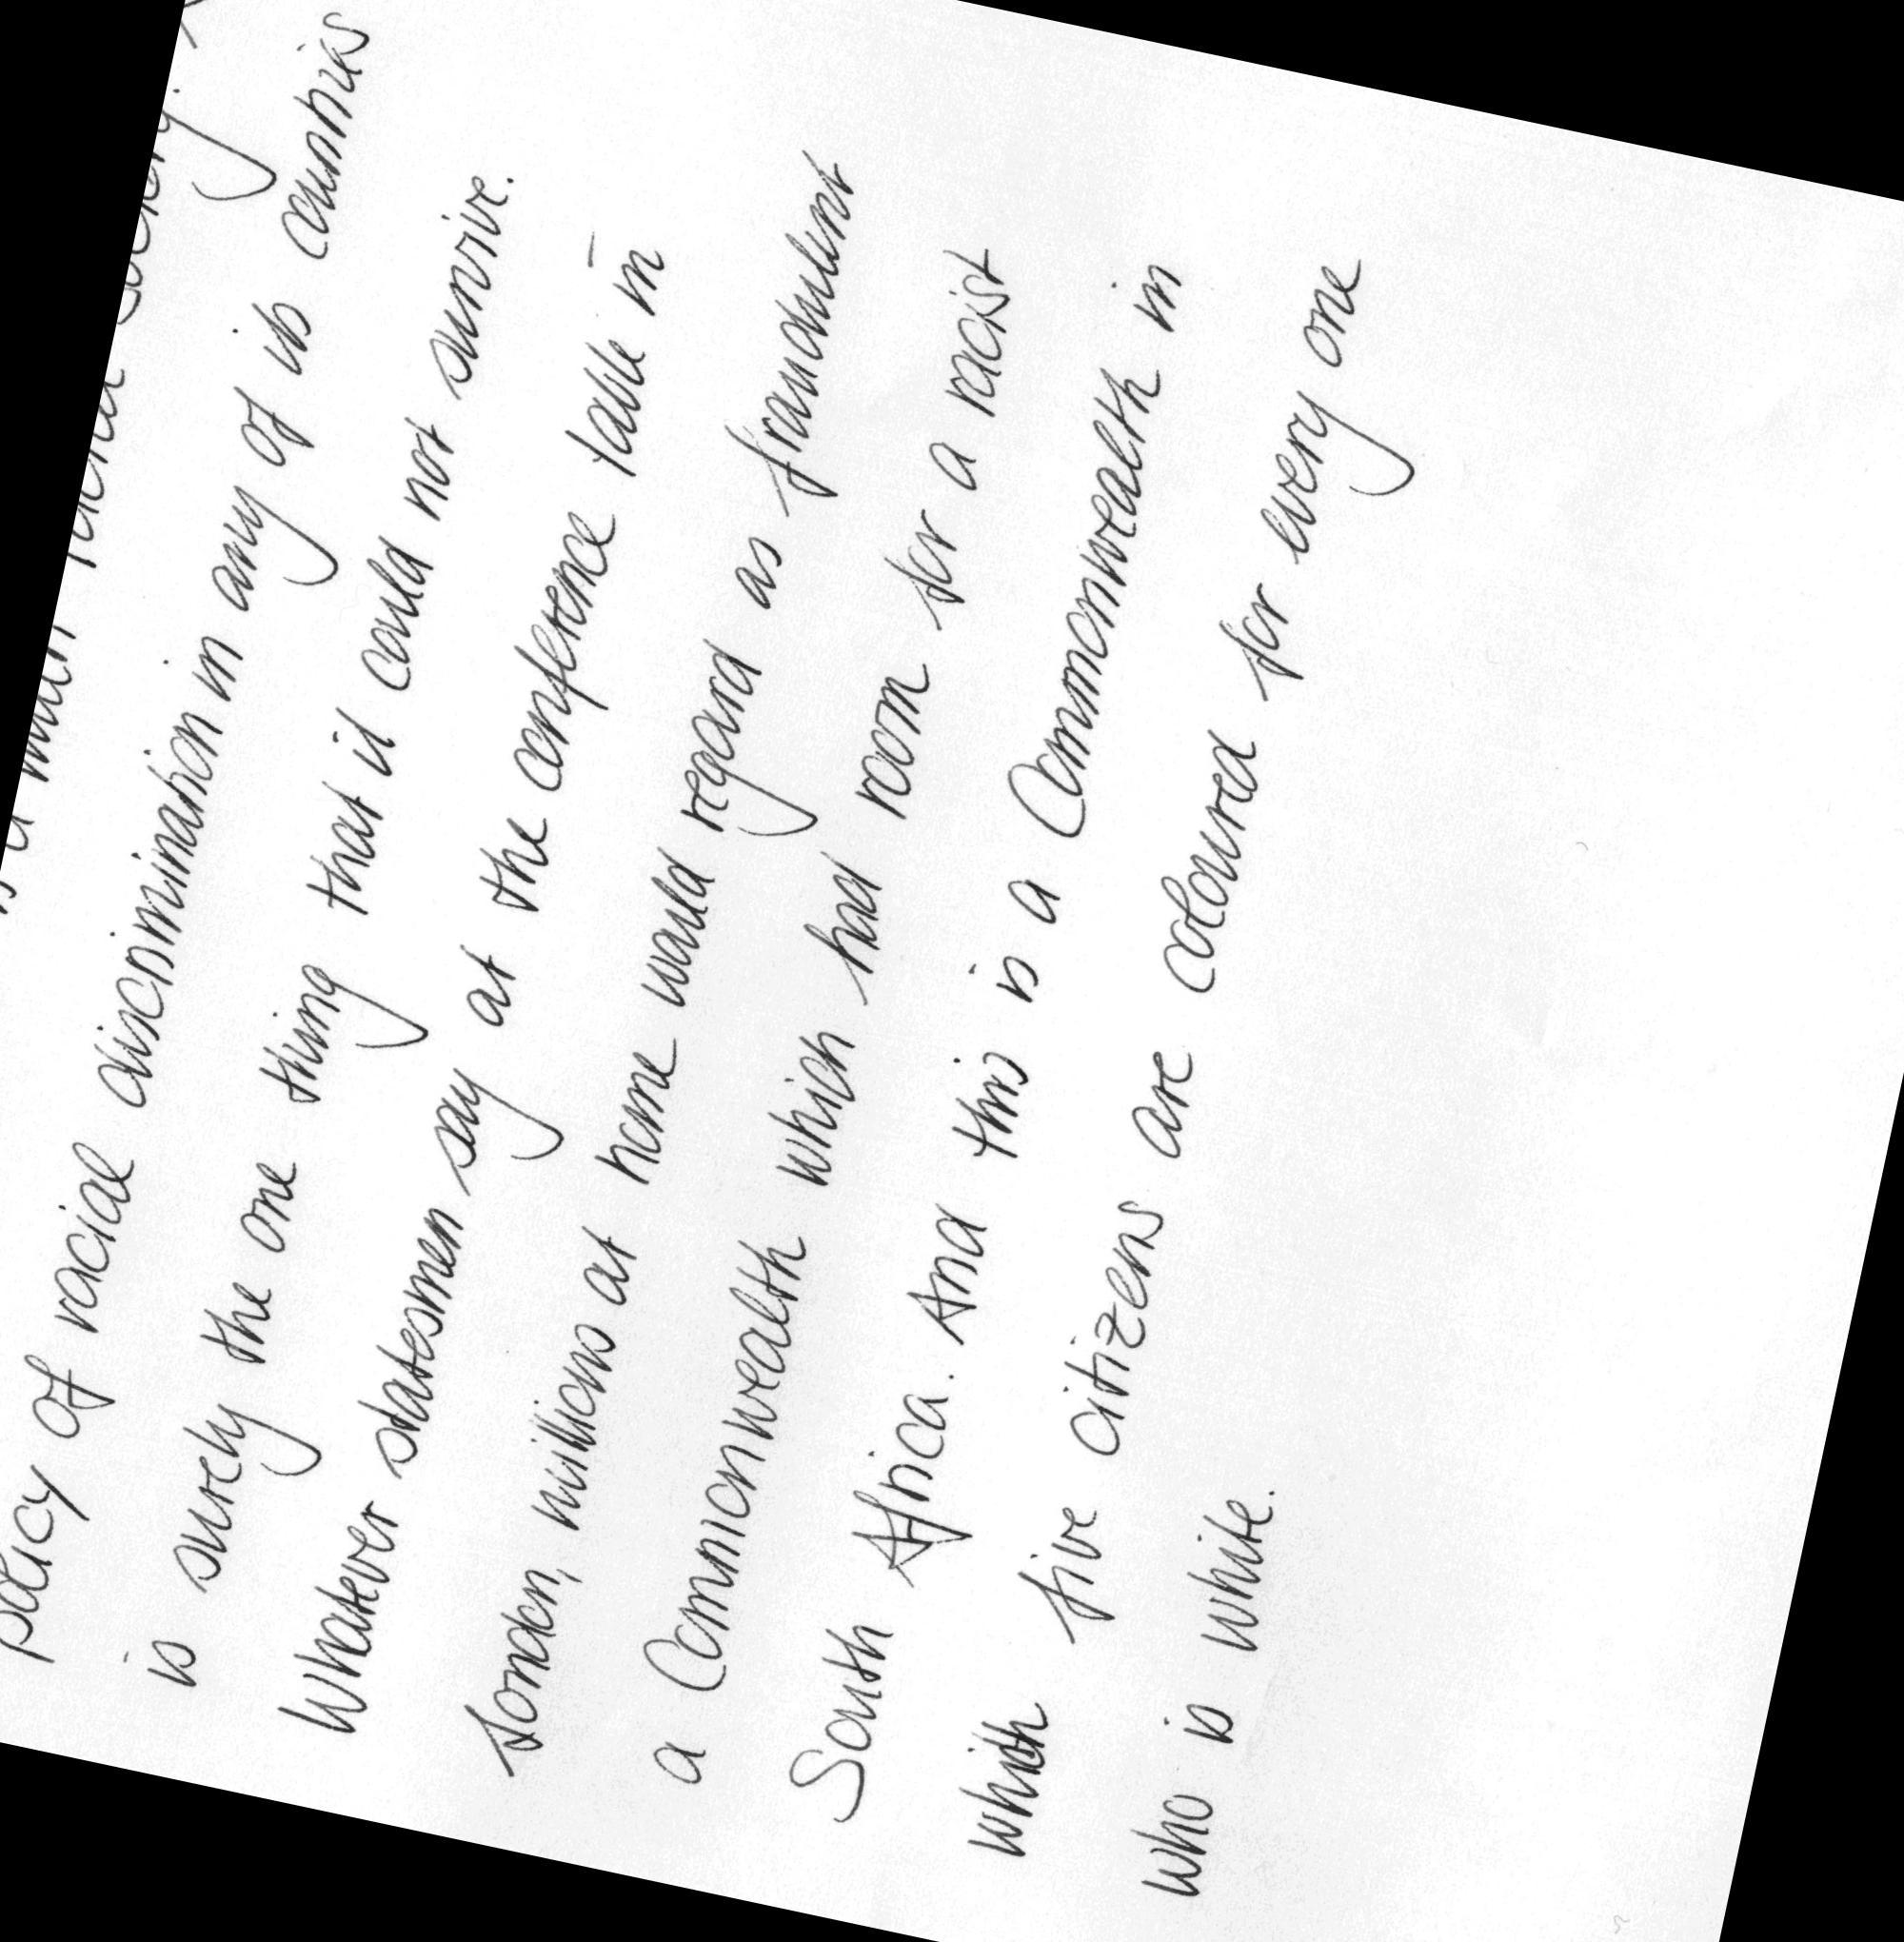 is a multi racial society. A
policy of racial discrimination in any of its countries
is surely the one thing that it could not survive.
Whatever statesmen say at the conference table in
London, millions at home would regard as fraudulent
a Commonwealth which had room for a racist
South Africa. And this is a Commonwealth in
which five citizens are coloured for every one
who is white.